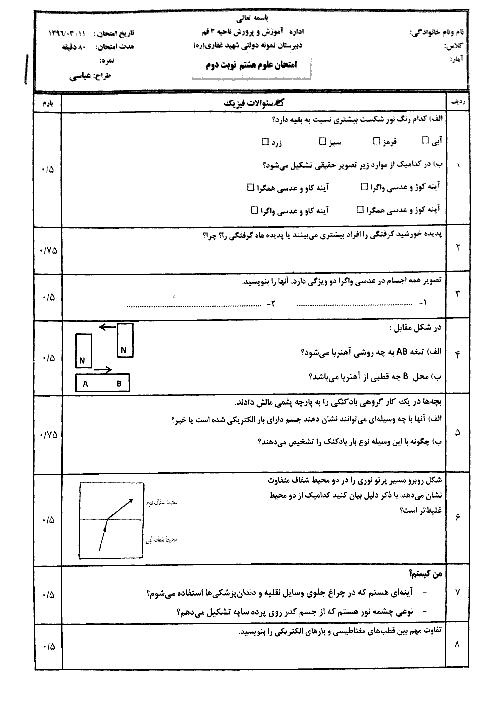 باسمه تعالی
نام و نام خانوادگی:
کلاس:
آمار:
اداره آموزش و پرورش ناحیه ۳ قم
دبیرستان نمونه دولتی شهید غفاری(ره)
امتحان علوم هشتم نوبت دوم
تاریخ امتحان: ۱۳۹۶/۰۳/۱۱
مدت امتحان: ۸۰ دقیقه
نمره:
طراح: عباسی
ردیف
سئوالات فیزیک
بارم
۱
الف) کدام رنگ نور شکست بیشتری نسبت به بقیه دارد؟
آبی □ قرمز □ سبز □ زرد □
ب) در کدامیک از موارد زیر تصویر حقیقی تشکیل می‌شود؟
آینه کوژ و عدسی واگرا □ آینه کاو و عدسی همگرا □
آینه کوژ و عدسی همگرا □ آینه کاو و عدسی واگرا □
۰/۵
۲
پدیده خورشید گرفتگی را افراد بیشتری می‌بینند یا پدیده ماه گرفتگی را؟ چرا؟
۰/۷۵
۳
تصویر همه اجسام در عدسی واگرا دو ویژگی دارد. آنها را بنویسید.
۱- ........................ ۲- ........................
۰/۵
۴
در شکل مقابل :
الف) تیغه AB به چه روشی آهنربا می‌شود؟
ب) محل B چه قطبی از آهنربا می‌باشد؟
N
N
A B
۰/۵
۵
بچه‌ها در یک کار گروهی بادکنکی را به پارچه پشمی مالش دادند.
الف) آنها با چه وسیله‌ای می‌توانند نشان دهند جسم دارای بار الکتریکی شده است یا خیر؟
ب) چگونه با این وسیله نوع بار بادکنک را تشخیص می‌دهند؟
۰/۷۵
۶
شکل روبرو مسیر پرتو نوری را در دو محیط شفاف متفاوت
نشان می‌دهد. با ذکر دلیل بیان کنید کدامیک از دو محیط
غلیظ‌تر است؟
۰/۵
۷
من کیستم؟
- آینه‌ای هستم که در چراغ جلوی وسایل نقلیه و دندان‌پزشکی‌ها استفاده می‌شوم؟
- نوعی چشمه نور هستم که از جسم کدر روی پرده سایه تشکیل می‌دهم؟
۰/۵
۸
تفاوت مهم بین قطب‌های مغناطیسی و بارهای الکتریکی را بنویسید.
۰/۵